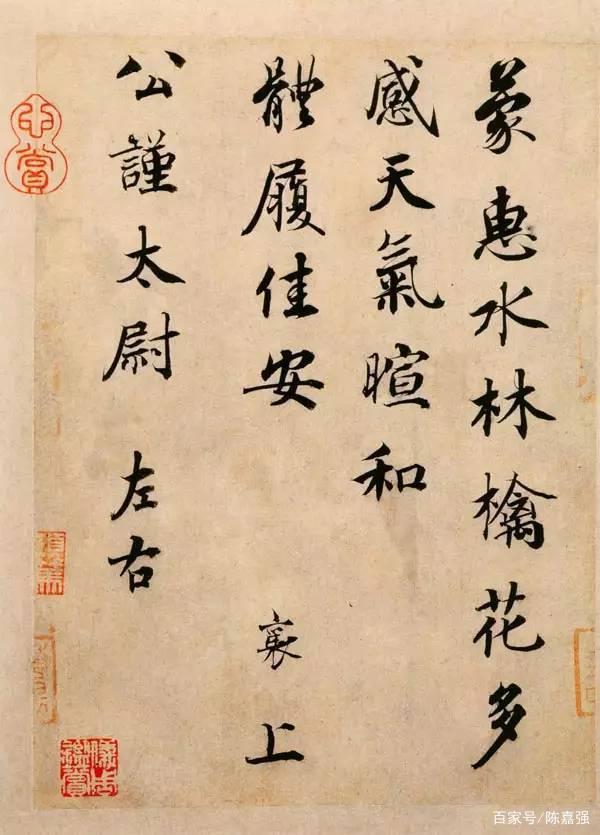 蒙惠水林檎花多
感天氣暄和
體履佳安 襄上
公謹太尉 左右
百家号/陈嘉强